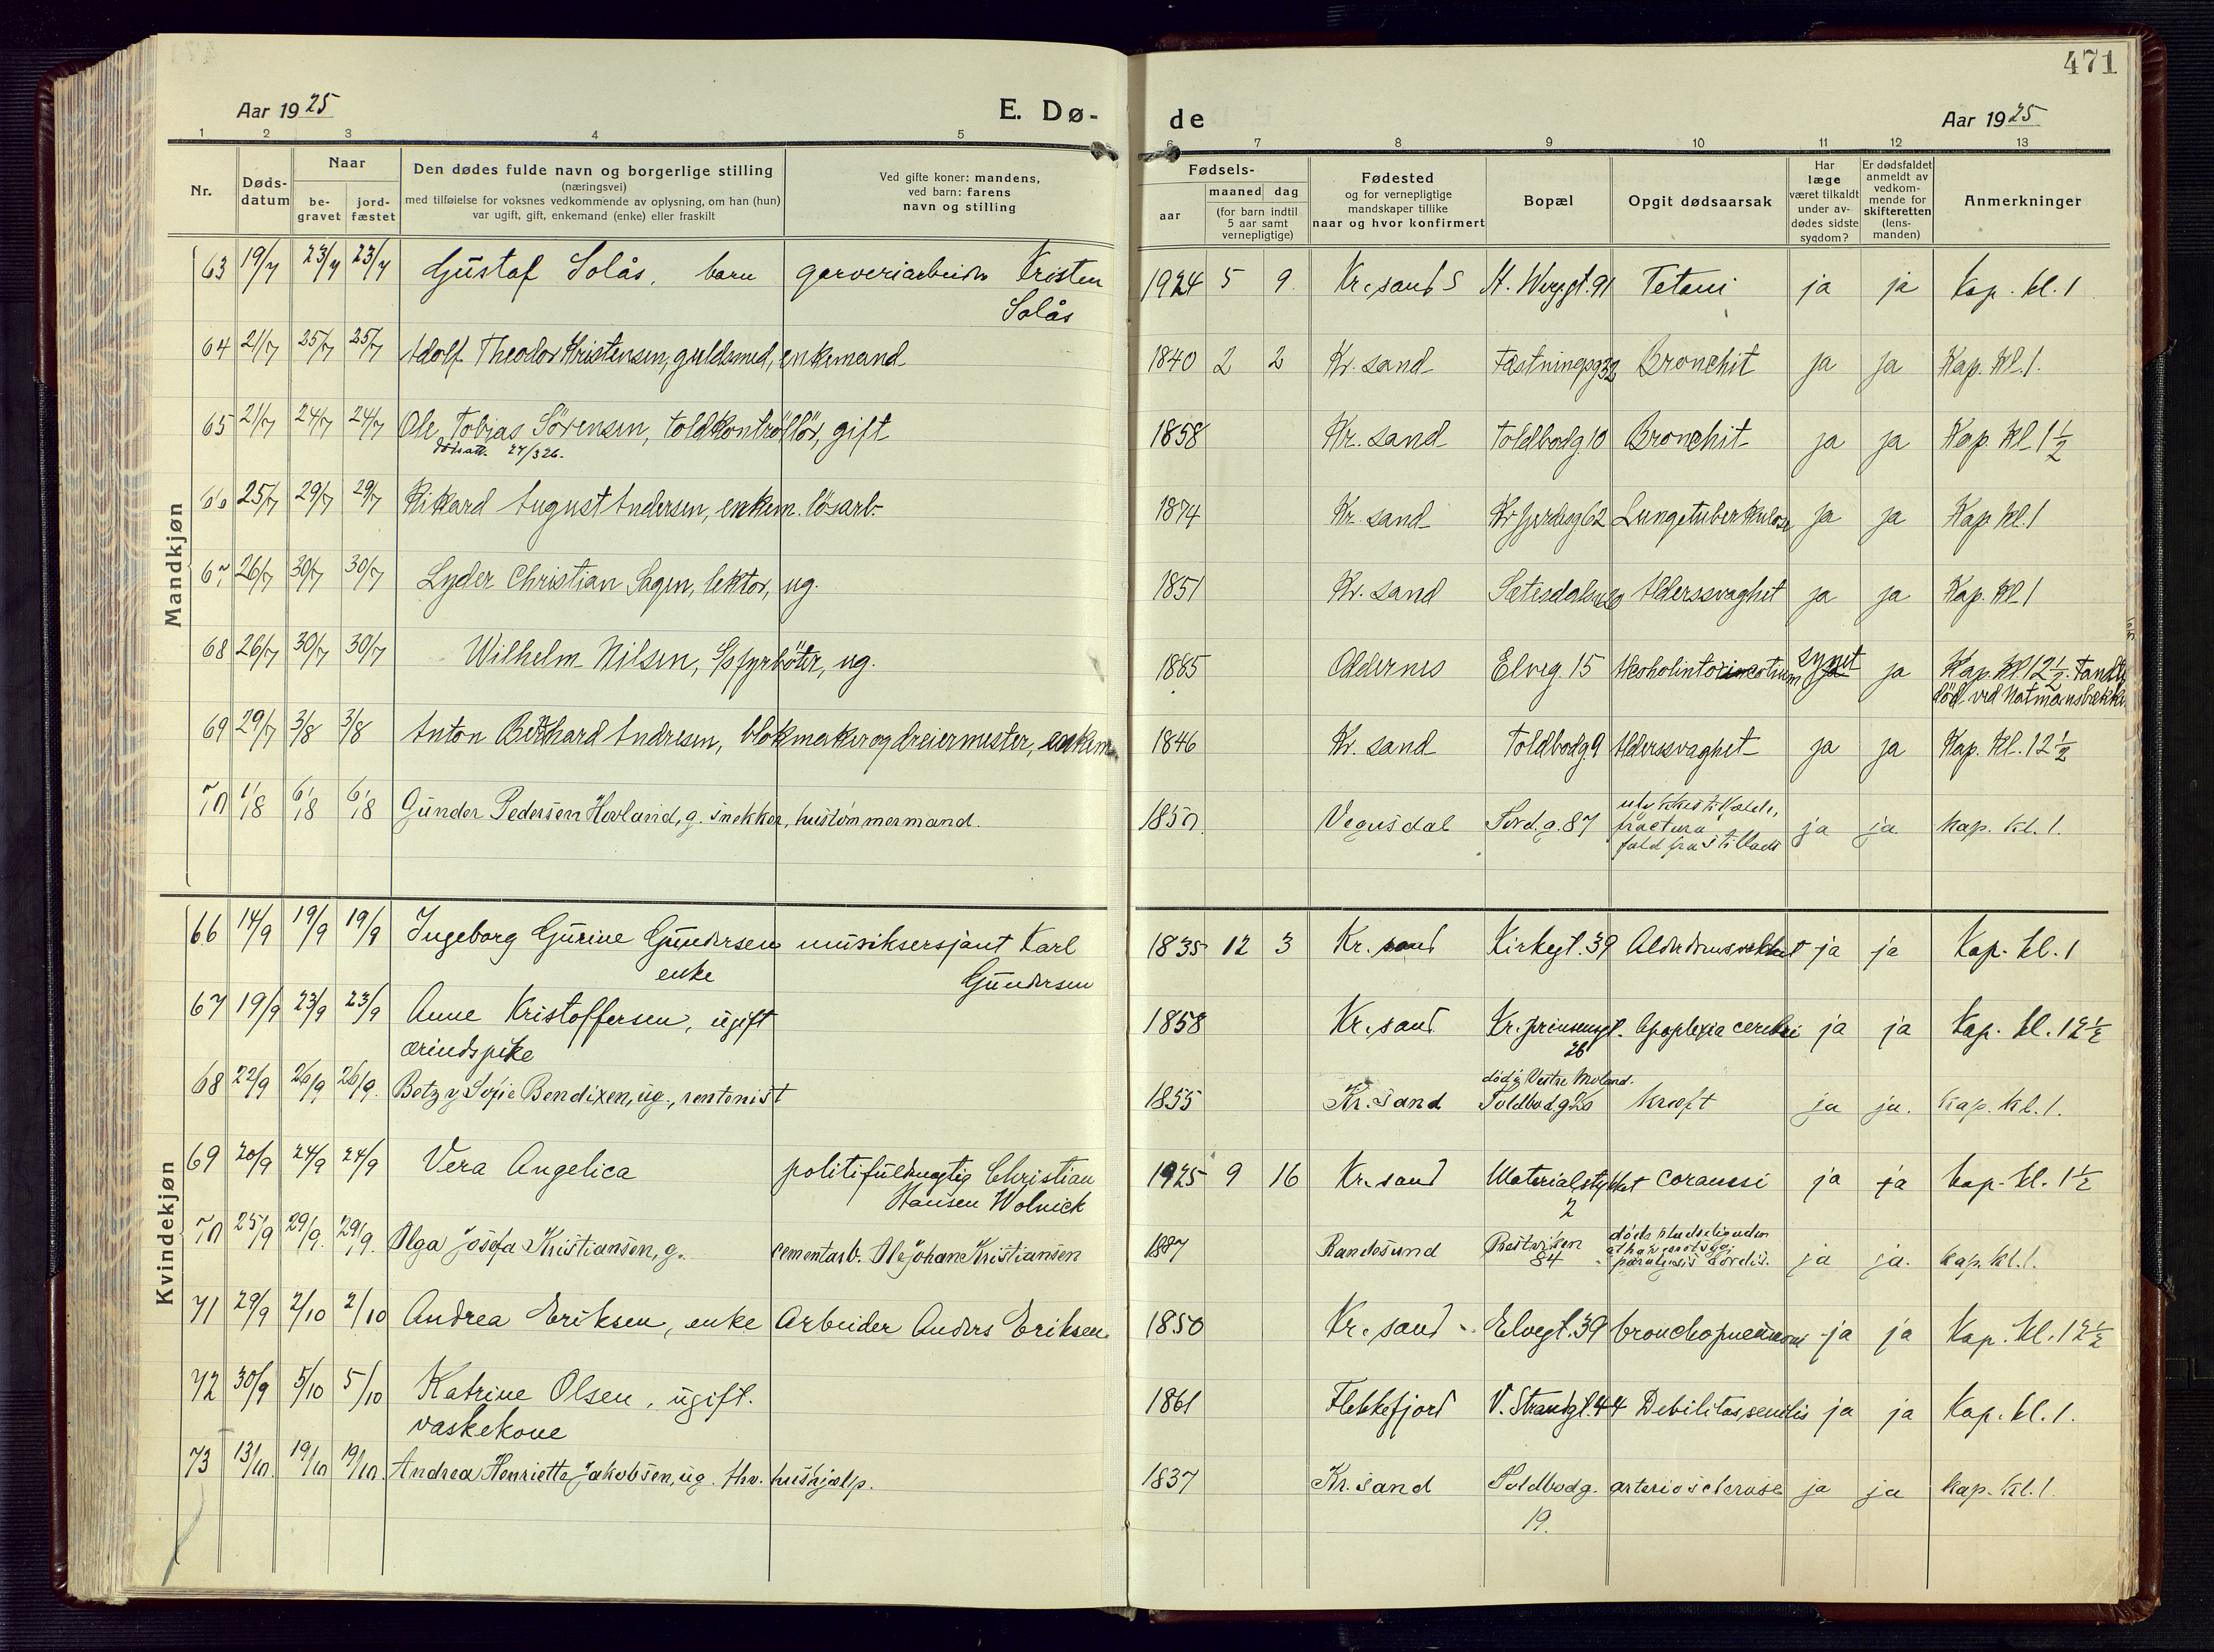 471
Aar 1925
E. Dø-
de
Aar 1925
1 2 3 4 5 6 7 8 9 10 11 12 13
Nr.
Døds-
datum
Naar
be-
gravet
jord-
fæstet
Den dødes fulde navn og borgerlige stilling
(næringsvei)
med tilføielse for voksnes vedkommende av oplysning, om han (hun)
var ugift, gift, enkemand (enke) eller fraskilt
Ved gifte koner: mandens,
ved barn: farens
navn og stilling
Fødsels-
aar
maaned dag
(for barn indtil
5 aar samt
vernepligtige)
Fødested
og for vernepligtige
mandskaper tillike
naar og hvor konfirmert
Bopæl
Opgit dødsaarsak
Har
læge
været tilkaldt
under av-
dødes sidste
sygdom?
Er dødsfaldet
anmeldt av
vedkom-
mende for
skifteretten
(lens-
manden)
Anmerkninger
Mandkjøn
63 19/7 23/7 23/7 Gustaf Solås, barn garveriarbeider Kristen
Solås
1924 5 9. Kr.sand S St. 91 Tetani ja ja Kap. kl. 1
64 21/7 25/7 25/7 Adolf Theodor Kristensen, guldsmed, enkemand
1840 2 2 Kr. sand Fæstningsg 32 Bronchit ja ja Kap. Kl. 1.
65 21/7 24/7 24/7 Ole Tobias Sörensen, toldkontrollör, gift
dödsatt. 27/3 26.
1858 Kr. sand Toldbodg. 10 Bronchit ja ja Kap Kl. 1 1/2
66 25/7 29/7 29/7 Rikard August Andersen, enkem. lösarb.
1874 Kr. sand Lungetuberkulose ja ja Kap Kl. 1
67 26/7 30/7 30/7 Lyder Christian Sagen, lektor, ug.
1851 Kr. sand Alderssvaghet ja ja Kap. Kl 1
68 26/7 30/7 30/7 Wilhelm Nilsen, S/s fyrböter, ug.
1885 Oddernes Elveg. 15 synet ja ja Kap. Kl. 12 1/2. Fandt
död ved
69 29/7 3/8 3/8 Anton Bernhard Andresen, blokmaker og dreiermester, enkem
1846 Kr. sand Toldbodg. 9 Alderssvaghet ja ja Kap. Kl. 12 1/2
70 1/8 6/8 6/8 Gunder Pedersen Hovland, g. snekker, hustömmermand.
1850. Vegusdal 87
fractura
fald fra stillads
ja ja Kap. Kl. 1.
Kvindekjøn
66 14/9 19/9 19/9 Ingeborg Gurine Gundersen musiksersjant Karl
enke Gundersen
1835 12 3 Kr. sand Kirkegt. 39 ja ja Kap. kl. 1
67 19/9 23/9 23/9 Anne Kristoffersen, ugift
ærindspike
1858 Kr.sand Kr. prinsensgt. Apoplexia cerebri ja ja Kap. kl. 12 1/2
26
68 22/9 26/9 26/9. Betzy Sofie Bendixen, ug., rentenist
död i Vestre Moland.
1855 Kr. sand Toldbodg 20 kræft ja ja. Kap. kl. 1.
69 20/9 24/9 24/9 Vera Angelica politifuldmægtig Christian
Hansen Wolnick
1925 9 16 Kr.sand Materialstykket ja ja kap. kl. 1 1/2
2
70 25/9 29/9. 29/9. Olga Josefa Kristiansen, g. cementarb. Ole Johan Kristiansen
1887 Randösund Prestviken
84
döde pludselig uden
paralysis cordis.
ja ja. kap. kl. 1.
71 29/9 2/10 2/10 Andrea Eriksen, enke Arbeider Anders Eriksen.
1850 Kr. sand Elvegt. 39 bronchopneumoni ja ja Kap. kl. 12 1/2
72 30/9 5/10 5/10 Katrine Olsen, ugift.
vaskekone
1861 Flekkefjord V. Strandgt. 44 Debilitas senilis ja ja Kap. kl. 1.
73 13/10. 19/10 19/10. Andrea Henriette Jakobsen, ug. fhv. hushjælp.
1837 Kr. sand Toldbodg. arteriosclerose ja ja kap. kl. 1.
19.